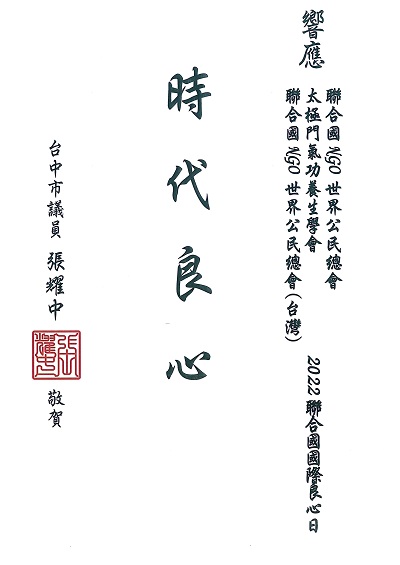 響應
聯合國NGO世界公民總會
太極門氣功養生學會
聯合國NGO世界公民總會(台灣)
2022聯合國國際良心日
時代良心
台中市議員 張耀中
張耀中
敬賀